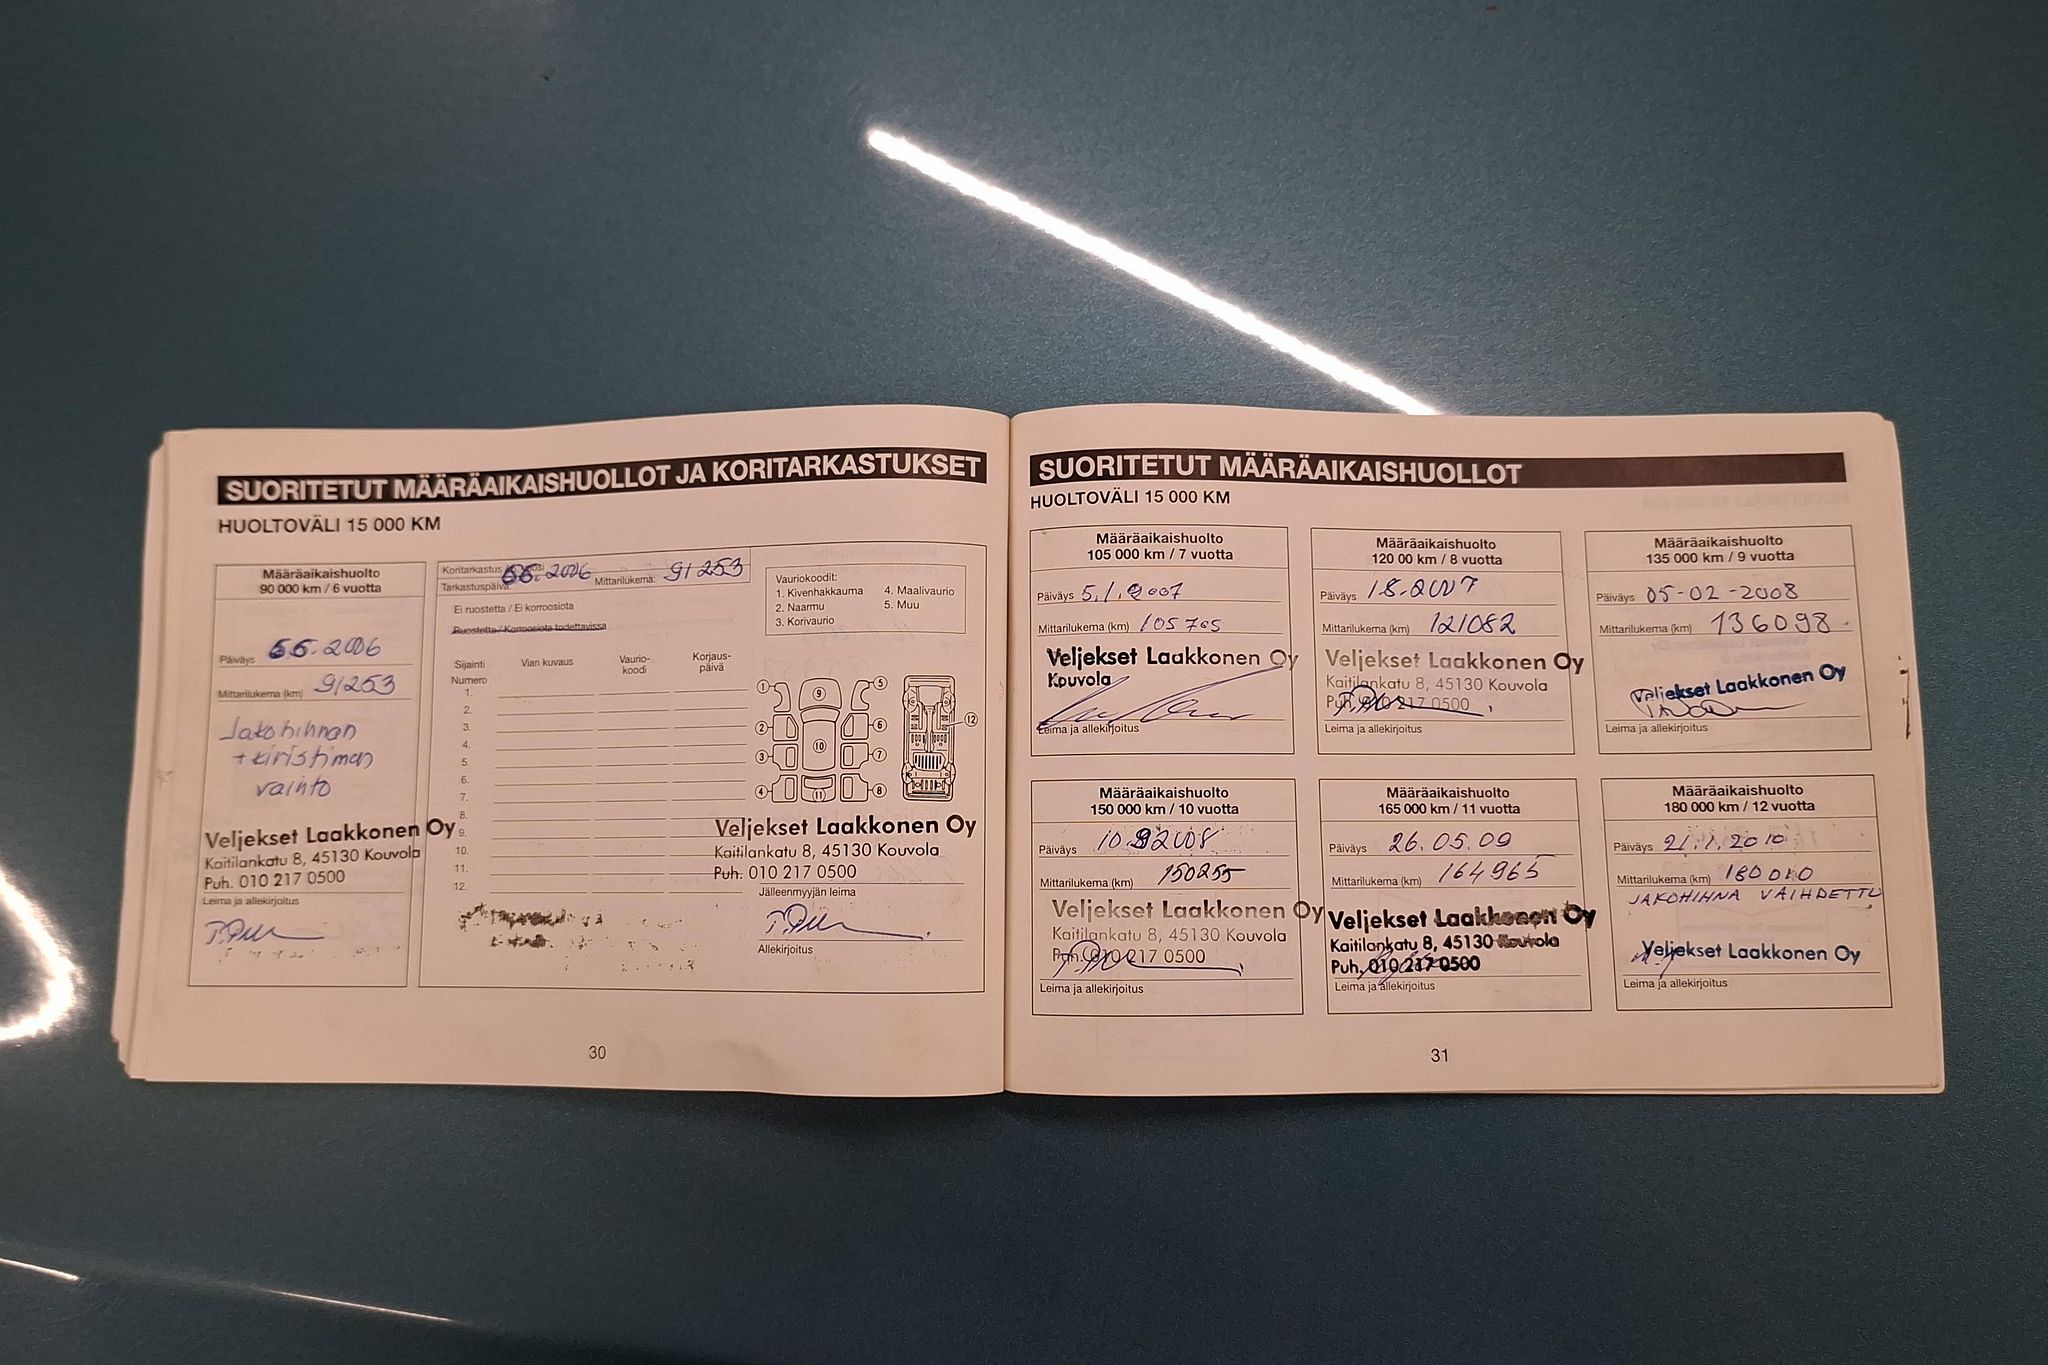 SUORITETUT MÄÄRÄAIKAISHUOLLOT JA KORITARKASTUKSET
HUOLTOVÄLI 15 000 KM
Määräaikaishuolto
90 000 km / 6 vuotta
Päiväys 6.6.2006
Mittarilukema (km) 91253
Jakohihnan
+ kiristimen
vaihto
Veljekset Laakkonen Oy
Kaitilankatu 8, 45130 Kouvola
Puh. 010 217 0500
Leima ja allekirjoitus
Koritarkastus
Tarkastuspäivä: 6.6.2006 Mittarilukema: 91253
Ei ruostetta / Ei korroosiota
Ruostetta / Korroosiota todettavissa
Vauriokoodit:
1. Kivenhakkauma 4. Maalivaurio
2. Naarmu 5. Muu
3. Korivaurio
Sijainti Vian kuvaus Vaurio- Korjaus-
Numero koodi päivä
1.
2.
3.
4.
5.
6.
7.
8.
9.
10.
11.
12.
1 9 5
2 6 12
3 10 7
4 11 8
Veljekset Laakkonen Oy
Kaitilankatu 8, 45130 Kouvola
Puh. 010 217 0500
Jälleenmyyjän leima
Allekirjoitus
30
SUORITETUT MÄÄRÄAIKAISHUOLLOT
HUOLTOVÄLI 15 000 KM
Määräaikaishuolto
105 000 km / 7 vuotta
Päiväys 5.1.2007
Mittarilukema (km) 105705
Veljekset Laakkonen Oy
Kouvola
Leima ja allekirjoitus
Määräaikaishuolto
120 00 km / 8 vuotta
Päiväys 1.8.2007
Mittarilukema (km) 121082
Veljekset Laakkonen Oy
Kaitilankatu 8, 45130 Kouvola
Puh. 010 217 0500
Leima ja allekirjoitus
Määräaikaishuolto
135 000 km / 9 vuotta
Päiväys 05-02-2008
Mittarilukema (km) 136098
Veljekset Laakkonen Oy
Leima ja allekirjoitus
Määräaikaishuolto
150 000 km / 10 vuotta
Päiväys 10.9.2008
Mittarilukema (km) 150255
Veljekset Laakkonen Oy
Kaitilankatu 8, 45130 Kouvola
Puh. 010 217 0500
Leima ja allekirjoitus
Määräaikaishuolto
165 000 km / 11 vuotta
Päiväys 26.05.09
Mittarilukema (km) 164965
Veljekset Laakkonen Oy
Kaitilankatu 8, 45130 Kouvola
Puh. 010 217 0500
Leima ja allekirjoitus
Määräaikaishuolto
180 000 km / 12 vuotta
Päiväys 21.1.2010
Mittarilukema (km) 180010
JAKOHIHNA VAIHDETTU
Veljekset Laakkonen Oy
Leima ja allekirjoitus
31